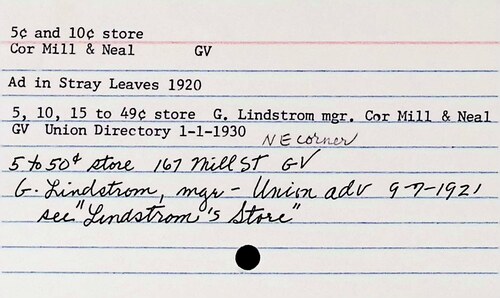 5¢ and 10¢ store
Cor Mill & Neal GV
Ad in Stray Leaves 1920
5, 10, 15 to 49¢ store G. Lindstrom mgr. Cor Mill & Neal
GV Union Directory 1-1-1930 NE corner
5 to 50¢ store 167 Mill St GV
G. Lindstrom, mgr - Union adv 9-7-1921
see "Lindstrom's Store"